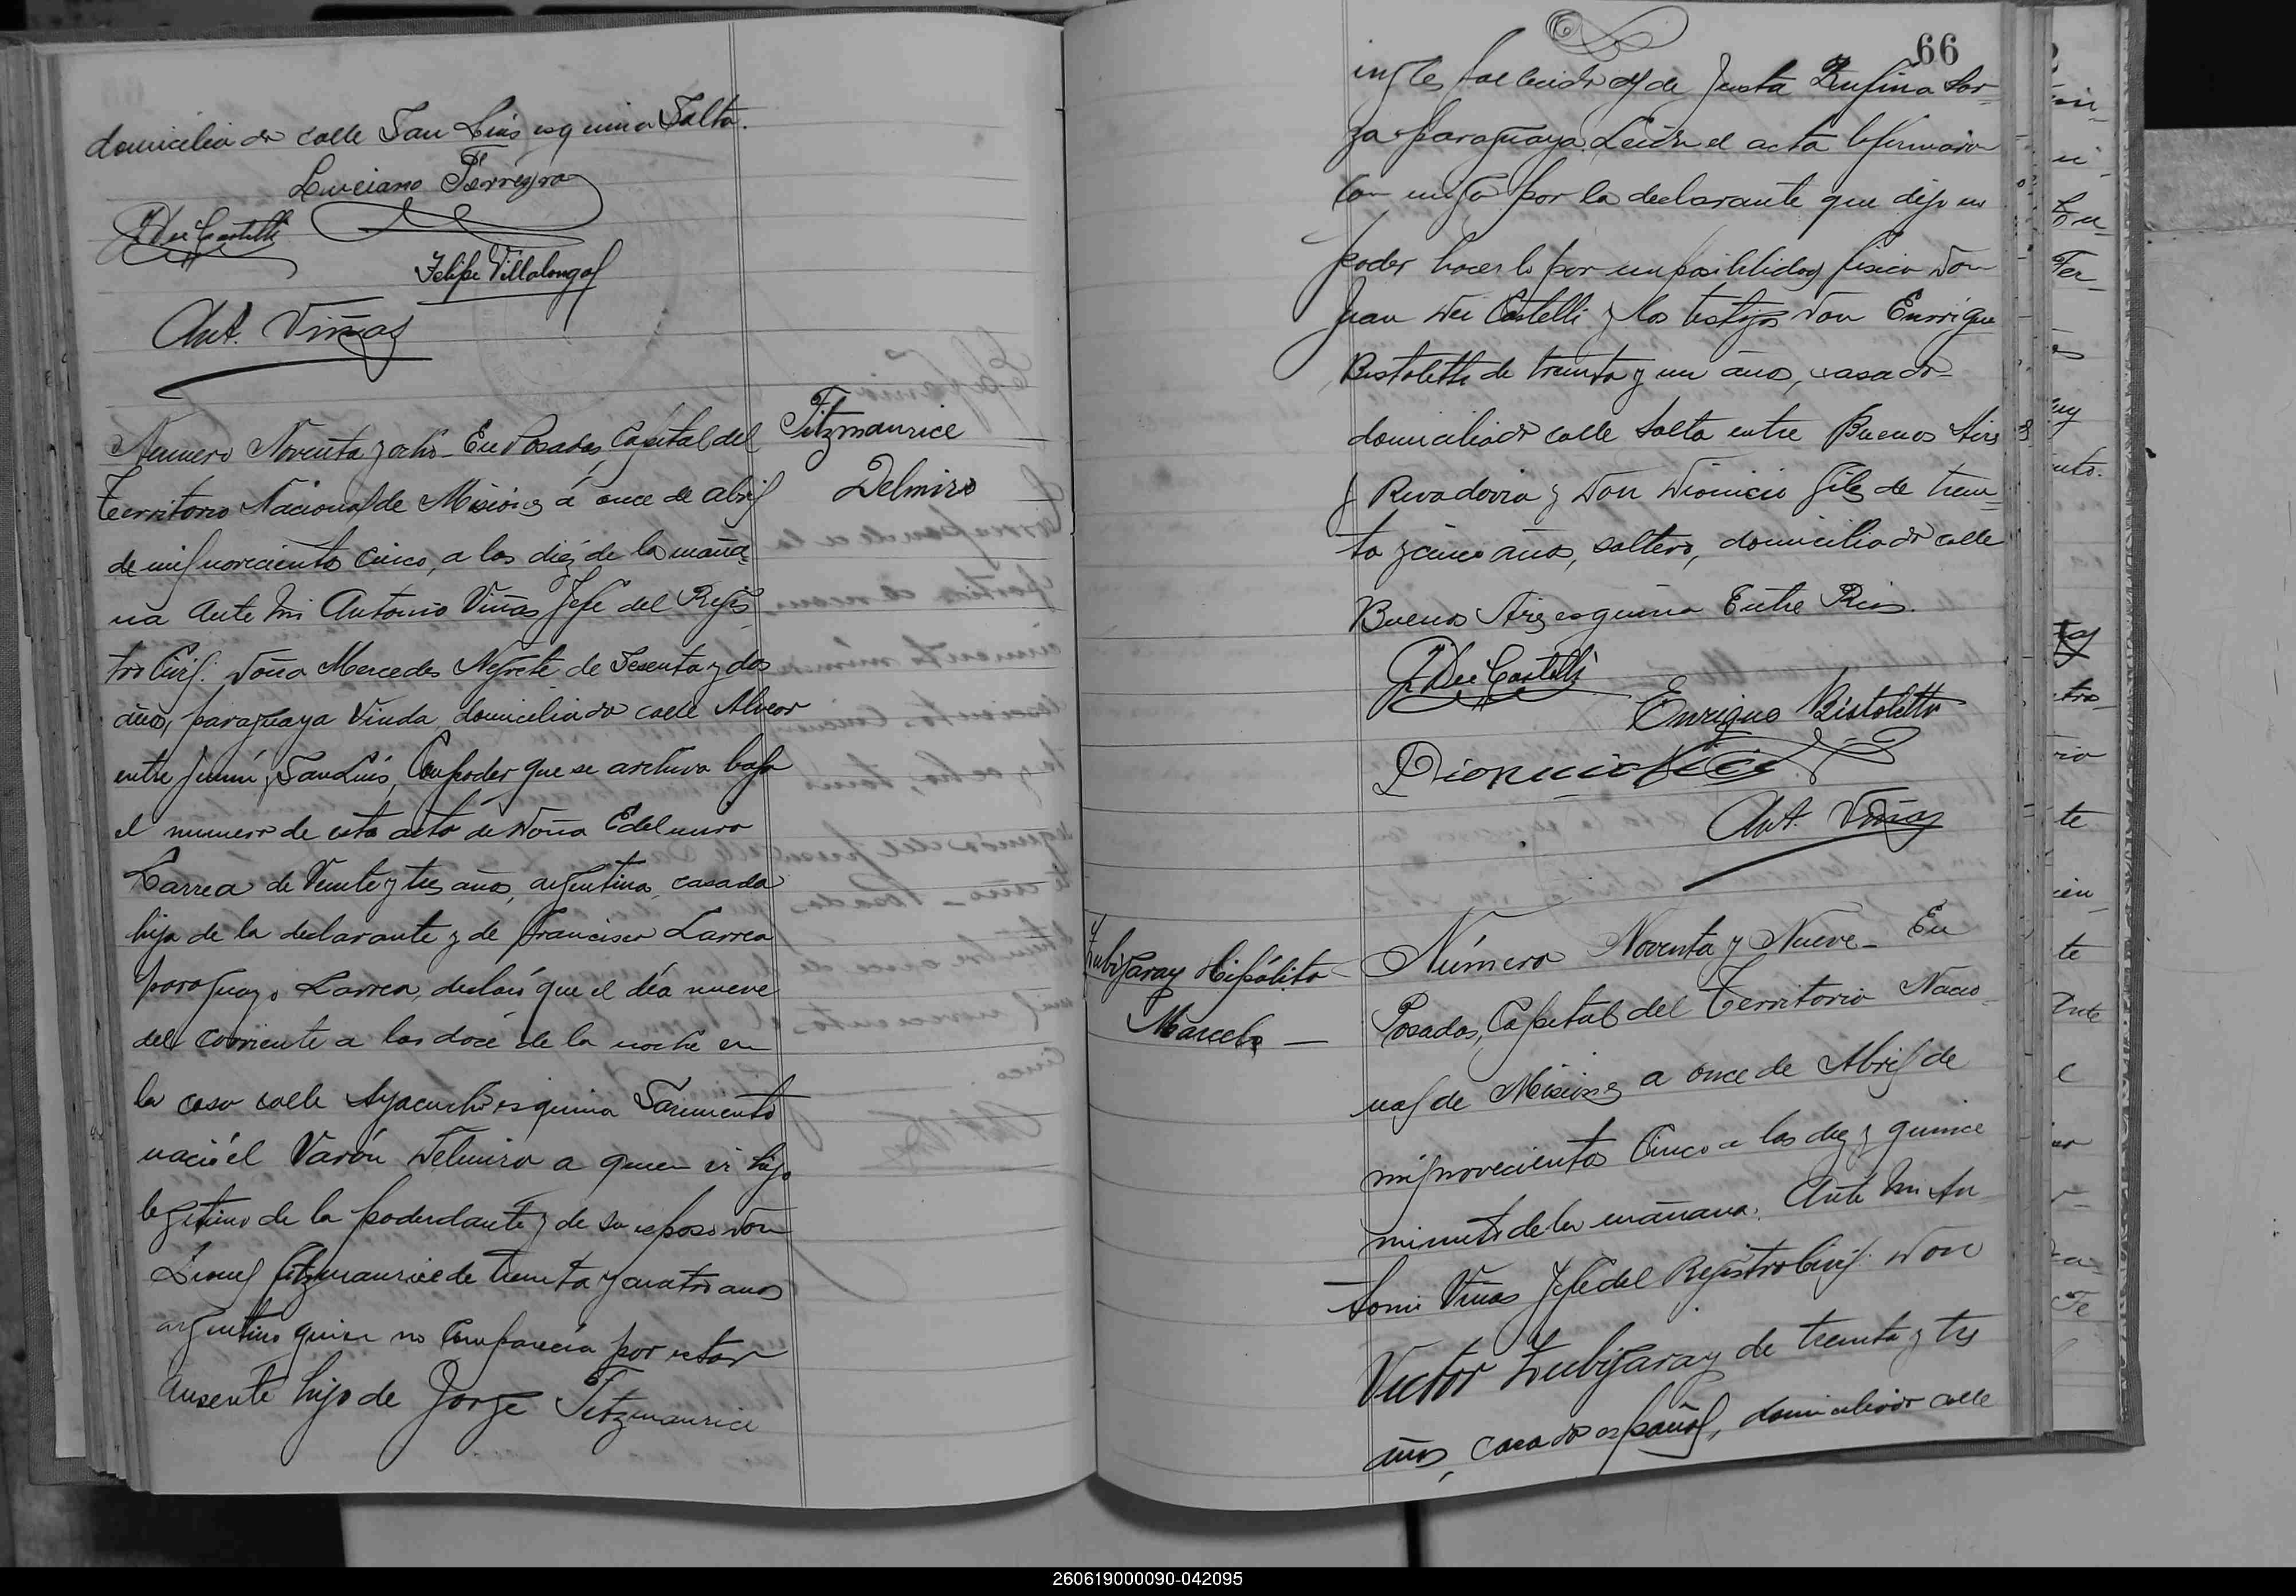 domiciliado calle San Luis esquina Salta.
Luciano Ferreyra
J Dei Castelli
Felipe Villalonga
Ant. Viñas
Fitzmaurice
Delmiro
Numero Noventa y ocho - En Posadas, Capital del
Territorio Nacional de Misiones á once de abril
de mil novecientos cinco, a las diez de la maña-
na Ante mi Antonio Viñas Jefe del Regis-
tro Civil: Doña Mercedes Negrete de Sesenta y dos
años, paraguaya Viuda domiciliada calle Alvear
entre Junín y San Luis, Con poder que se archiva bajo
el numero de esta acta de Doña Edelmira
Larrea de Veinte y tres años, argentina, casada
hija de la declarante y de Francisco Larrea
paraguayo Larrea, declaró que el día nueve
del corriente a las doce de la noche en
la casa calle Ayacucho esquina Sarmiento
nació el Varón Delmiro a quien es hijo
legitimo de la poderdante y de su esposo Don
Lionel Fitzmaurice de treinta y cuatro años
argentino quien no Comparecia por estar
Ausente hijo de Jorge Fitzmaurice
66
ingles fallecido y de Justa Rufina Sor-
za paraguaya. Leída el acta la firmaron
con migo por la declarante que dijo no
poder hacerlo por imposibilidad fisica Don
Juan Dei Castelli y los testigos Don Enrrique
Bistoletti de treinta y un años, casado
domiciliado calle Salta entre Buenos Aires
y Rivadavia y Don Dionicio Gils de trein-
ta y cinco años, soltero, domiciliado calle
Buenos Aires esquina Entre Rios.
J. Dei Castelli
Enrique Bistoletto
Dionicio
Ant. Viñas
Zubigaray Hipólito
Marcelo
Número Noventa y Nueve - En
Posadas, Capital del Territorio Nacio-
nal de Misiones a once de Abril de
mil novecientos Cinco a las diez y quince
minutos de la mañana. Ante mi An-
tonio Viñas Jefe del Registro Civil: Don
Victor Zubigaray de treinta y tres
años, casado español, domiciliado calle
260619000090-042095